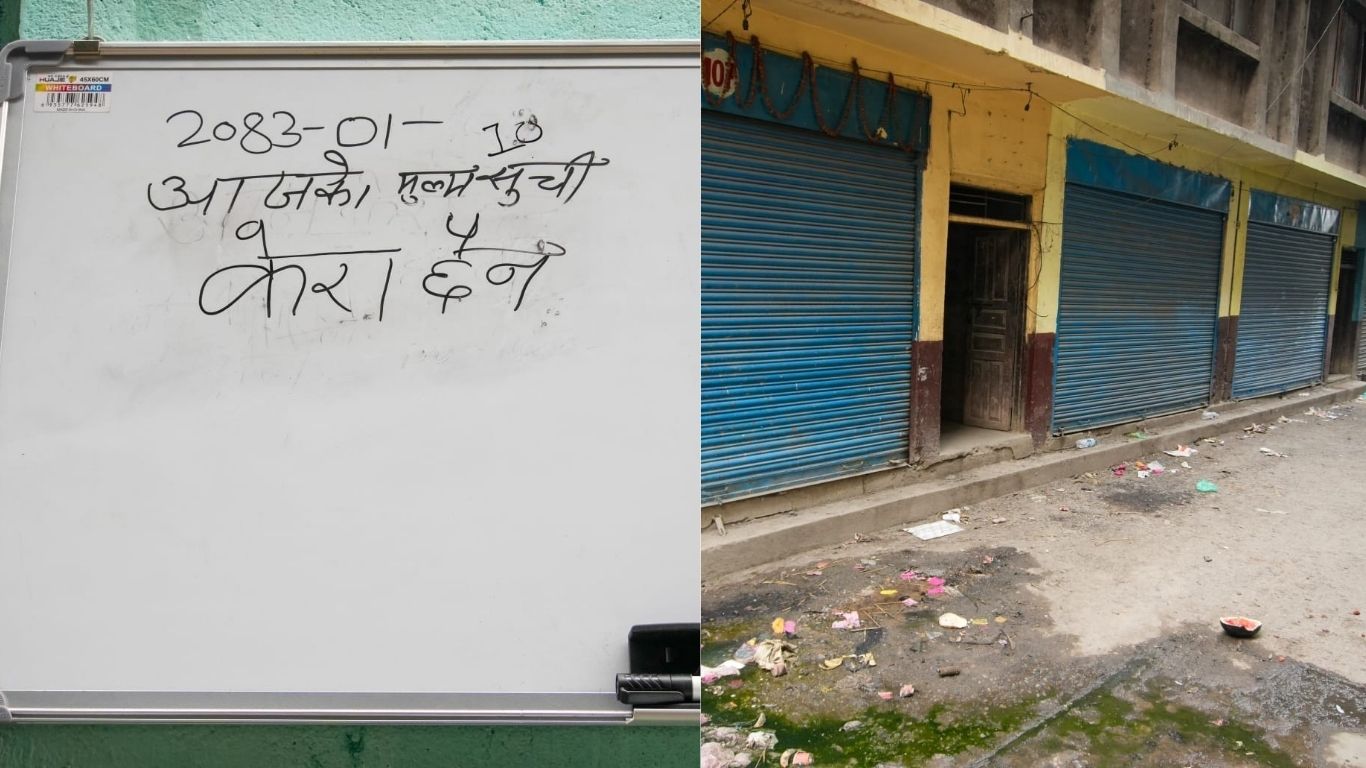 HUAJIE 45X60CM
WHITEBOARD
2083-01-10
आजको मुल्य सुची
केरा छैन
107